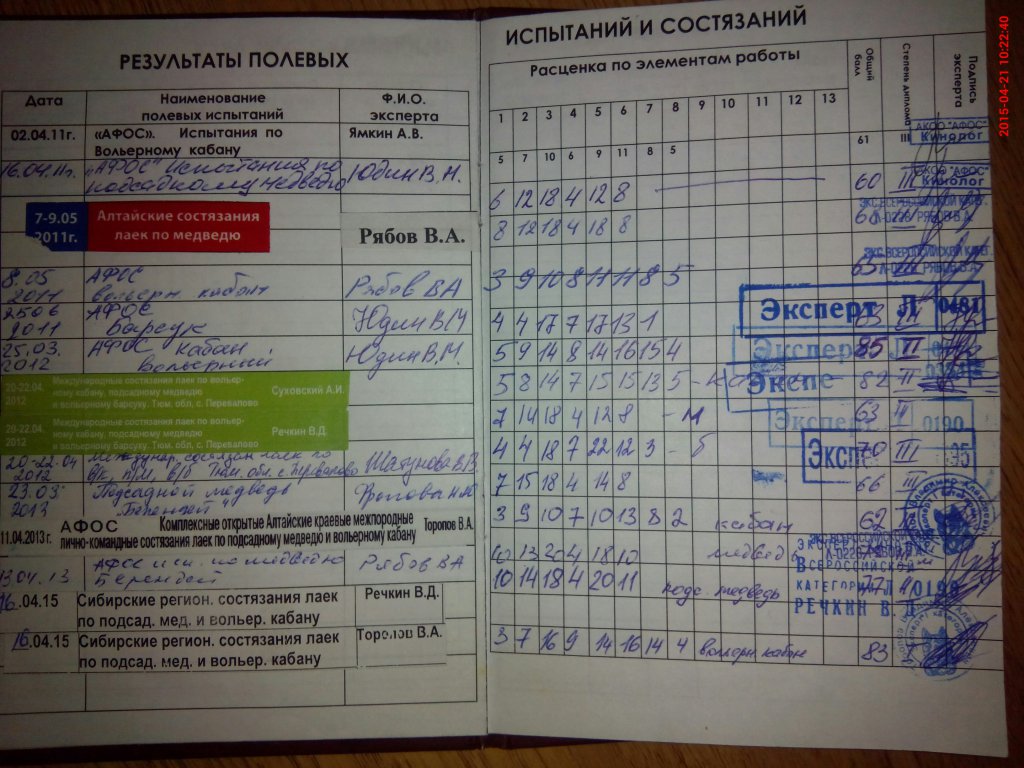 РЕЗУЛЬТАТЫ ПОЛЕВЫХ
Дата
Наименование
полевых испытаний
Ф.И.О.
эксперта
02.04.11г.
«АФОС». Испытания по
Вольерному кабану
Ямкин А.В.
16.04.11г.
"АФОС" Испытания по
подсадному медведю
Юдин В.М.
7-9.05
2011г.
Алтайские состязания
лаек по медведю
Рябов В.А.
8.05
2011
АФОС
вольерн кабан
Рябов ВА
2506
2011
АФОС
Барсук
Юдин В.М
25.03.
2012
АФОС кабан
вольерный
Юдин В.М.
20-22.04.
2012
Международные состязания лаек по вольер-
ному кабану, подсадному медведю
и вольерному барсуку. Тюм. обл, с. Перевалово
Суховский А.И.
20-22.04.
2012
Международные состязания лаек по вольер-
ному кабану, подсадному медведю
и вольерному барсуку. Тюм. обл, с. Перевалово
Речкин В.Д.
20-22.04
2012
состязан лаек по
Тюм. обл. с. Перевалово
23.03
2013
Подсадной медведь
11.04.2013г.
АФОС Комплексные открытые Алтайские краевые межпородные
лично-командные состязания лаек по подсадному медведю и вольерному кабану
Торопов В.А.
13.04.13
АФОС исп. по медведю
Берендей
Рябов ВА
16.04.15
Сибирские регион. состязания лаек
по подсад. мед. и вольер. кабану
Речкин В.Д.
16.04.15
Сибирские регион. состязания лаек
по подсад. мед. и вольер. кабану
Торопов В.А.
ИСПЫТАНИЙ И СОСТЯЗАНИЙ
Расценка по элементам работы
Общий
балл
Степень диплома
Подпись
эксперта
1 2 3 4 5 6 7 8 9 10 11 12 13
5 7 10 6 9 11 8 5
61 III
АКОО "АФОС"
Кинолог
6 12 18 4 12 8
60 III
АКОО "АФОС"
Кинолог
8 12 18 4 18 8
ЭКС.ВСЕРОССИЙСКОЙ КАТЕГ.
Л-0226 РЯБОВ В.А.
3 9 10 8 11 11 8 5
ЭКС.ВСЕРОССИЙСКОЙ КАТЕГ.
Л-0226 РЯБОВ В.А.
4 4 17 7 17 13 1
63 III
Эксперт Л 0481
5 9 14 8 14 16 15 4
85 II
Эксперт
5 8 14 7 15 15 13 5
82 II
Экспе
7 14 18 4 12 8 - м
63 III
Эксперт 0190
4 4 18 7 22 12 3 - б
70 III
Эксп
7 15 18 4 14 8
66 III
3 9 10 7 10 13 8 2 кабан
62
10 13 20 4 18 10 медведь
ЭКСПЕРТ
Л-0226 РЯБОВ В.А.
10 14 18 4 20 11 подс. медведь
77 II
ВСЕРОССИЙСКОЙ
КАТЕГОРИИ Л 0190
РЕЧКИН В.Д.
3 7 16 9 14 16 14 4 вольерн кабан
83
2015-04-21 10:22:40